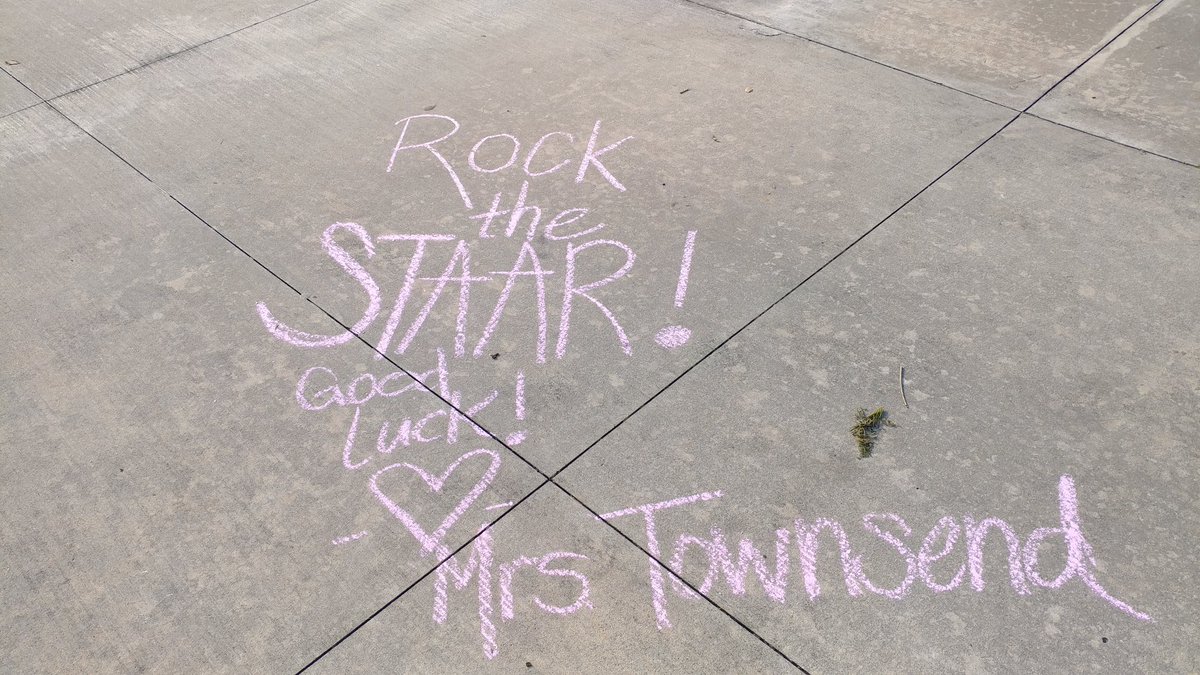 Rock
the
STAAR!
Good
Luck!
Mrs Townsend